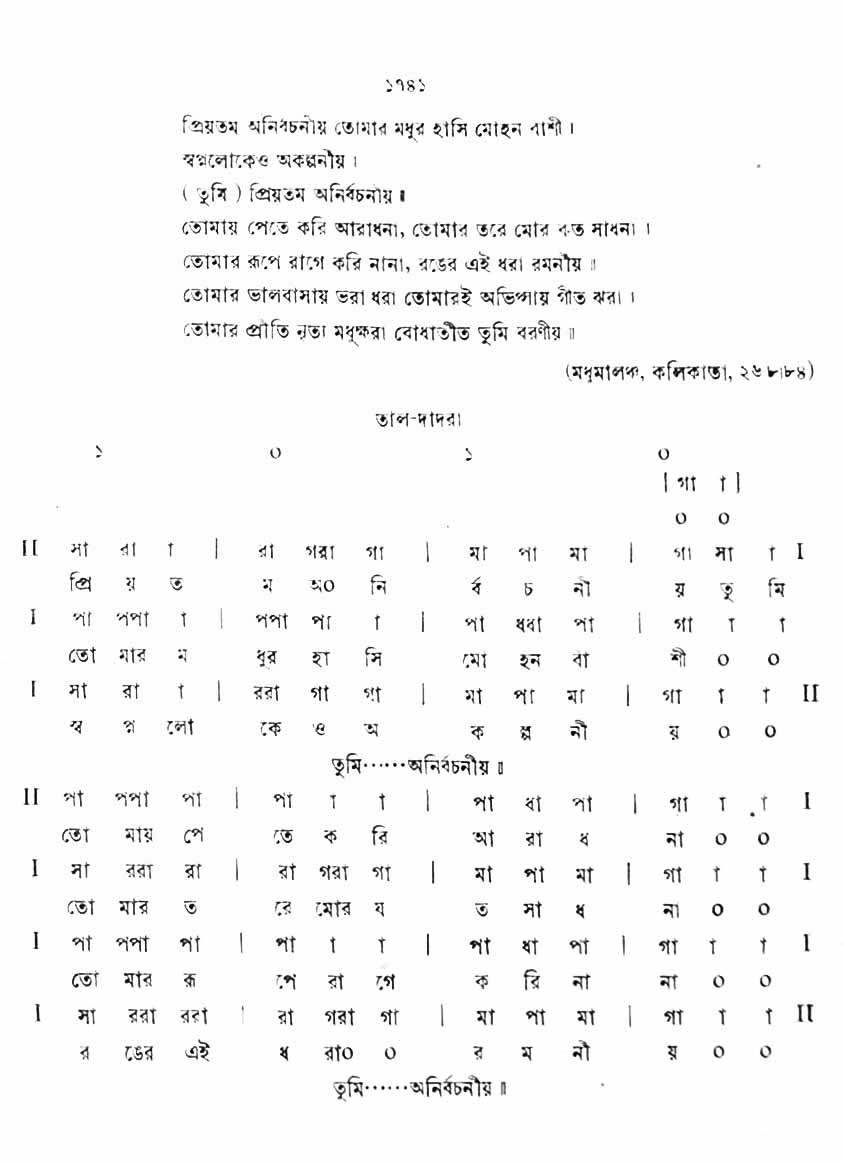 ১৭৪১
প্রিয়তম অনির্বচনীয় তোমার মধুর হাসি মোহন বাশী ।
স্বপ্নলোকেও অকল্পনীয় ।
( তুমি ) প্রিয়তম অনির্বচনীয় ॥
তোমায় পেতে করি আরাধনা, তোমার তরে মোর কত সাধনা ।
তোমার রূপে রাগে করি নানা, রঙের এই ধরা রমনীয় ॥
তোমার ভালবাসায় ভরা ধরা তোমারই অভিপ্সায় গীত ঝরা ।
তোমার প্রীতি নৃত্য মধুক্ষরা বোধাতীত তুমি বরণীয় ॥
(মধুমালঞ্চ, কলিকাতা, ২৬৮৮৪)
তাল-দাদরা
১ ০ ১ ০
| গা া |
০ ০
II সা রা া | রা গরা গা | মা পা মা | গা সা া I
প্রি য় ত ম অ০ নি র্ব চ নী য় তু মি
I পা পপা া | পপা পা া | পা ধধা পা | গা া া
তো মার ম ধুর হা সি মো হন বা শী ০ ০
I সা রা া | ররা গা গা | মা পা মা | গা া া II
স্ব প্ন লো কে ও অ ক ল্প নী য় ০ ০
তুমি······অনির্বচনীয় ॥
II পা পপা পা | পা া া | পা ধা পা | গা া া I
তো মায় পে তে ক রি আ রা ধ না ০ ০
I সা ররা রা | রা গরা গা | মা পা মা | গা া া I
তো মার ত রে মোর য ত সা ধ না ০ ০
I পা পপা পা | পা া া | পা ধা পা | গা া া I
তো মার রূ পে রা গে ক রি না না ০ ০
I সা ররা ররা | রা গরা গা | মা পা মা | গা া া II
র ঙের এই ধ রা০ ০ র ম নী য় ০ ০
তুমি······অনির্বচনীয় ॥